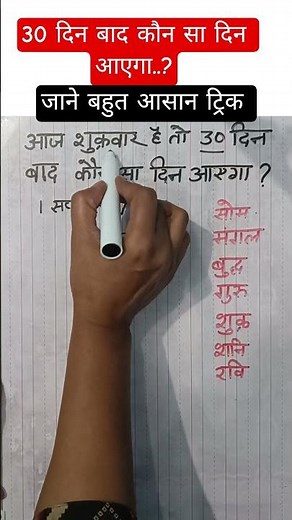 30 दिन बाद कौन सा दिन
आएगा..?
जाने बहुत आसान ट्रिक
आज शुक्रवार है तो 30 दिन
बाद कौन सा दिन आएगा ?
1
सोम
मंगल
बुद्ध
गुरु
शुक्र
शनि
रवि